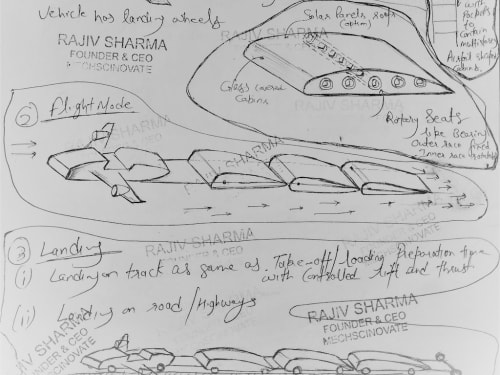 Vehicle has landing wheels
RAJIV SHARMA
FOUNDER & CEO
MECHSCINOVATE
Solar Panels roofs
with
Pockets
to
Contain
Airfoil shaped
Glass covered
Cabins
RAJIV SHARMA
Rotary Seats
like Bearing
Outer race fixed
Inner race rotatable
② Flight Mode
RAJIV SHARMA
FOUNDER & CEO
MECHSCINOVATE
RAJIV SHARMA
③ Landing
RAJIV SHARMA
FOUNDER & CEO
(i) Landing on track as same as Take-off/Loading Preparation time
with Controlled lift and thrust
(ii) Landing on road/Highways
RAJIV SHARMA
FOUNDER & CEO
MECHSCINOVATE
RAJIV SHARMA
FOUNDER & CEO
MECHSCINOVATE